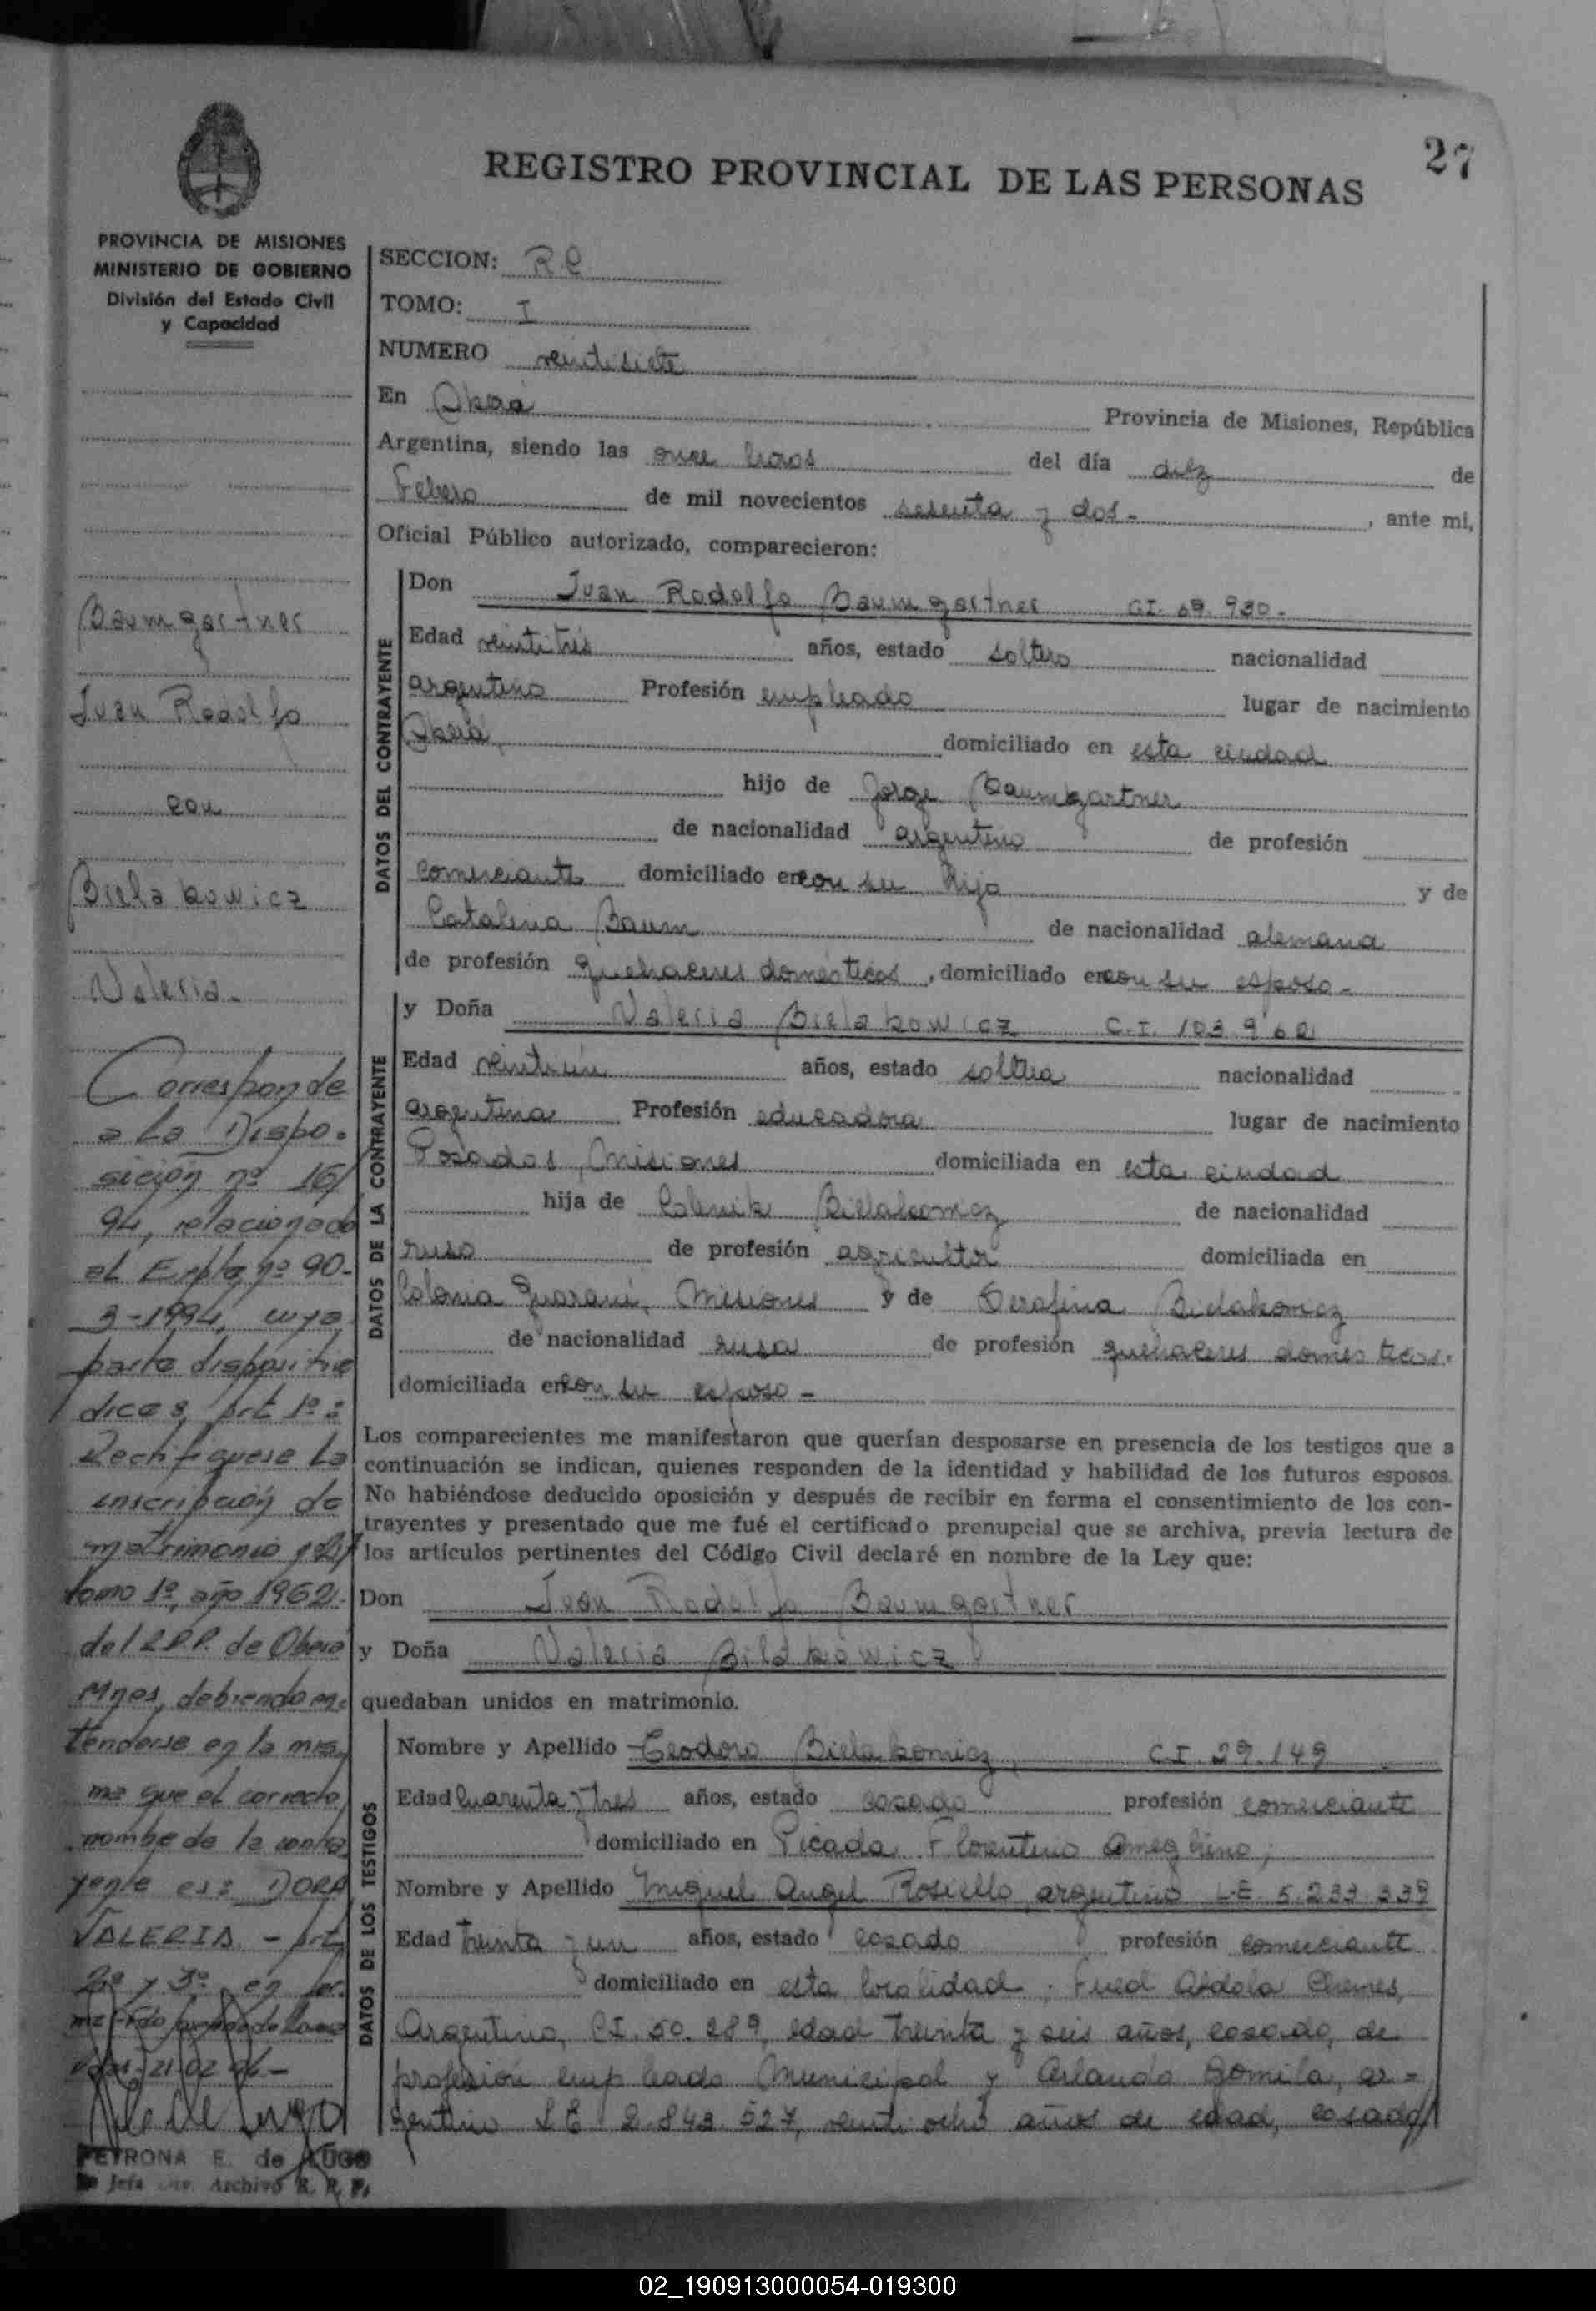 27
REGISTRO PROVINCIAL DE LAS PERSONAS
PROVINCIA DE MISIONES
MINISTERIO DE GOBIERNO
División del Estado Civil
y Capacidad
Baumgartner
Juan Rodolfo
con
Bielakowicz
Valeria.
Corresponde
a la Dispo-
sición nº 16/
94, relacionado
al Expte nº 90-
3-1994, cuya
parte dispositiva
dice: Art 1º:
Rectifíquese la
inscripción de
matrimonio
tomo 1º, año 1962
del R.P.P. de Oberá
Mnes, debiendo en-
tenderse en la mis-
ma que el correcto
nombre de la contra
yente es: DORA
VALERIA. - Art
2º y 3º
21-02
PETRONA E. de LUGO
Jefa Archivo R. P. P.
SECCION: R.C
TOMO: I
NUMERO veintisiete
En Oberá Provincia de Misiones, República
Argentina, siendo las once horas del día diez de
Febrero de mil novecientos sesenta y dos- , ante mi,
Oficial Público autorizado, comparecieron:
DATOS DEL CONTRAYENTE
Don Juan Rodolfo Baumgartner C.I. 69.930.-
Edad veintitrés años, estado soltero nacionalidad
argentino Profesión empleado lugar de nacimiento
Oberá, domiciliado en esta ciudad
hijo de Jorge Baumgartner
de nacionalidad argentino de profesión
comerciante domiciliado en con su hijo y de
Catalina Baum de nacionalidad alemana
de profesión quehaceres domésticos , domiciliado en con su esposo-
DATOS DE LA CONTRAYENTE
y Doña Valeria Bielakowicz C.I. 103.962
Edad veintiún años, estado soltera nacionalidad
argentina Profesión educadora lugar de nacimiento
Posadas, Misiones domiciliada en esta ciudad
hija de Bielakowicz de nacionalidad
ruso de profesión agricultor domiciliada en
Colonia Guaraní, Misiones y de Serafina Bielakowicz
de nacionalidad rusa de profesión quehaceres domésticos.
domiciliada en con su esposo-
Los comparecientes me manifestaron que querían desposarse en presencia de los testigos que a
continuación se indican, quienes responden de la identidad y habilidad de los futuros esposos.
No habiéndose deducido oposición y después de recibir en forma el consentimiento de los con-
trayentes y presentado que me fué el certificado prenupcial que se archiva, previa lectura de
los artículos pertinentes del Código Civil declaré en nombre de la Ley que:
Don Juan Rodolfo Baumgartner
y Doña Valeria Bilakowicz
quedaban unidos en matrimonio.
DATOS DE LOS TESTIGOS
Nombre y Apellido Teodoro Bielakowicz, C.I. 29.149
Edad cuarenta y tres años, estado casado profesión comerciante
domiciliado en Picada Florentino Ameghino;
Nombre y Apellido Miguel Angel Rosiello, argentino L.E. 5.233.339
Edad treinta y un años, estado casado profesión comerciante
domiciliado en esta localidad; Fued Abdala Chemes,
Argentino, C.I. 50.289, edad treinta y seis años, casado, de
profesión empleado Municipal y Orlando Gomila, ar-
gentino L.E. 2.843.527, veintiocho años de edad, casado/
02_190913000054-019300